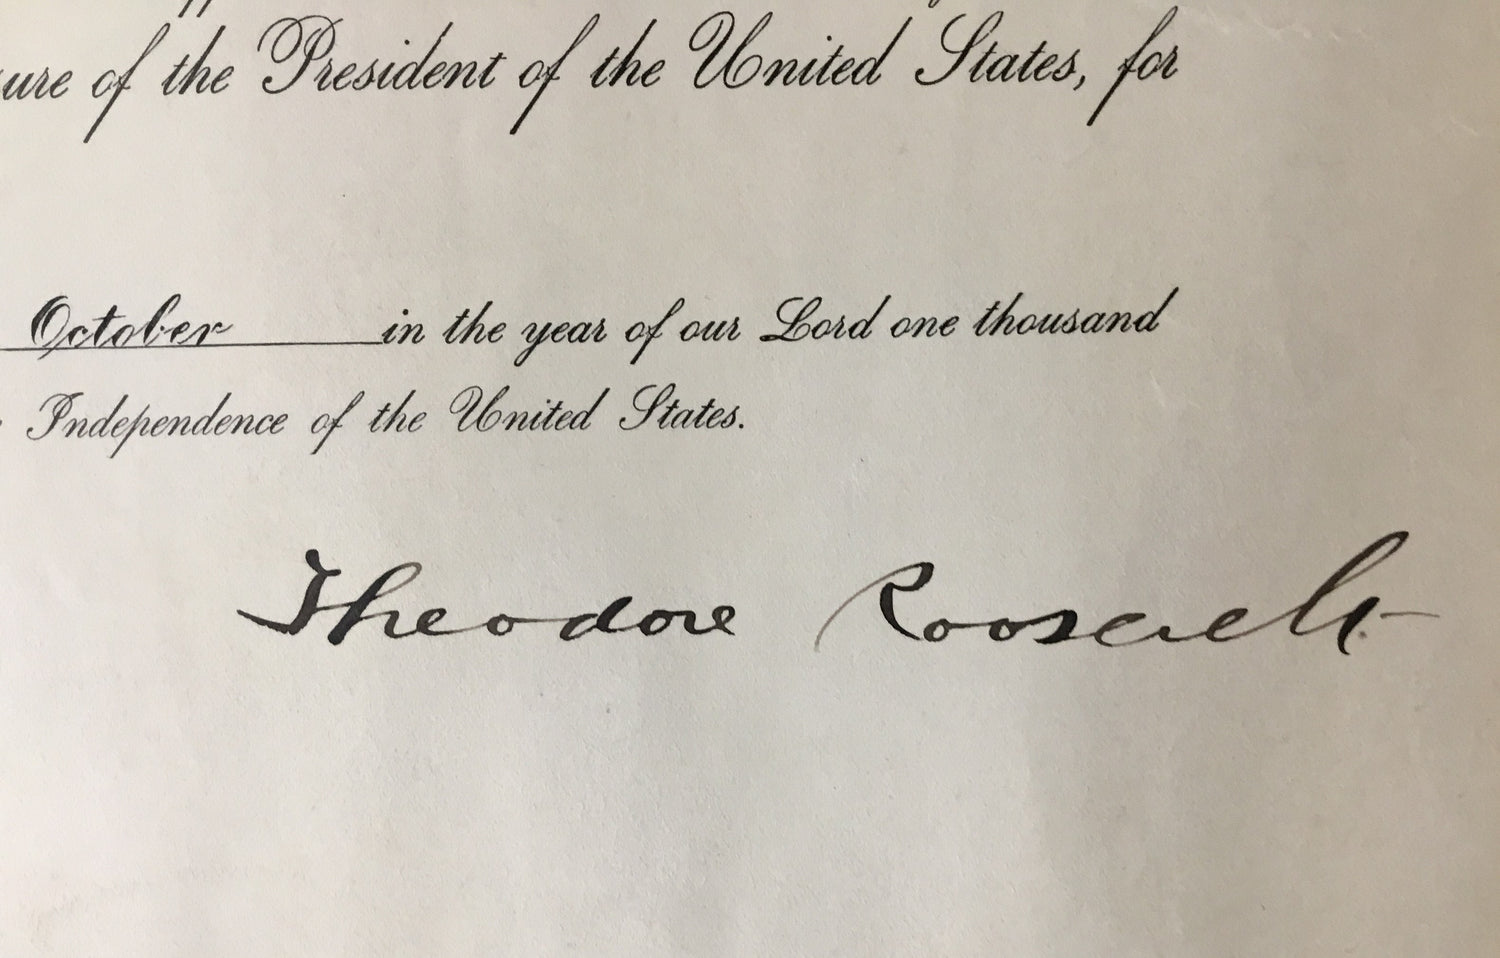 ure of the President of the United States, for
October in the year of our Lord one thousand
Independence of the United States.
Theodore Roosevelt